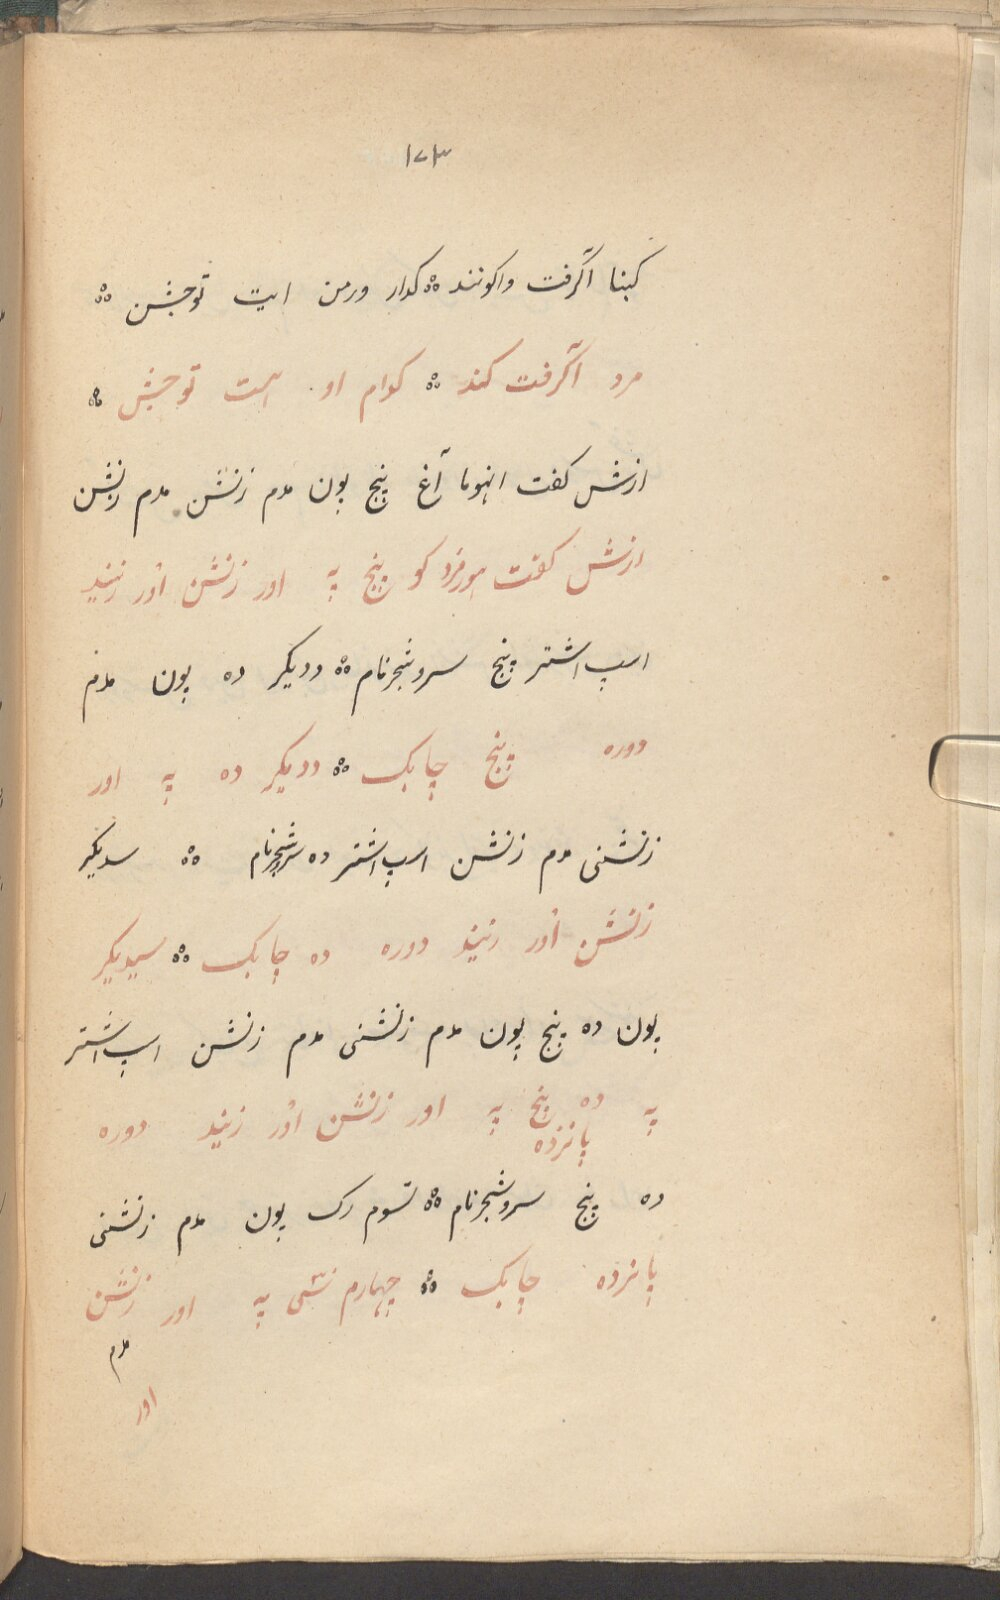 ۱۷۳
کبنا آگرفت واکونند ܀ کدار ورمن ایت توجشن ܀
مرد آگرفت کند ܀ کوام او هست توجش ܀
ازش کفت انهوما آغ پنج پون مدم زنشن مدم زنشن
ازش کفت هورمزد کو پنج په اور زنشن اور زنیند
اسپ اشتر پنج سروشجرنام ܀ ددیکر ده پون مدم
دوره پنج چابک ܀ ددیکر ده په اور
زنشنی مدم زنشن اسپ اشتر ده سروشجرنام ܀ سدیکر
زنشن اور زنیند دوره ده چابک ܀ سیدیکر
پون ده پنج پون مدم زنشنی مدم زنشن اسپ اشتر
په ده پنج په اور زنشن اور زنیند دوره
پانزده
ده پنج سروشجرنام ܀ تسوم رک پون مدم زنشنی
پانزده چابک ܀ چهارم سی په اور زنشن
مدم
اور